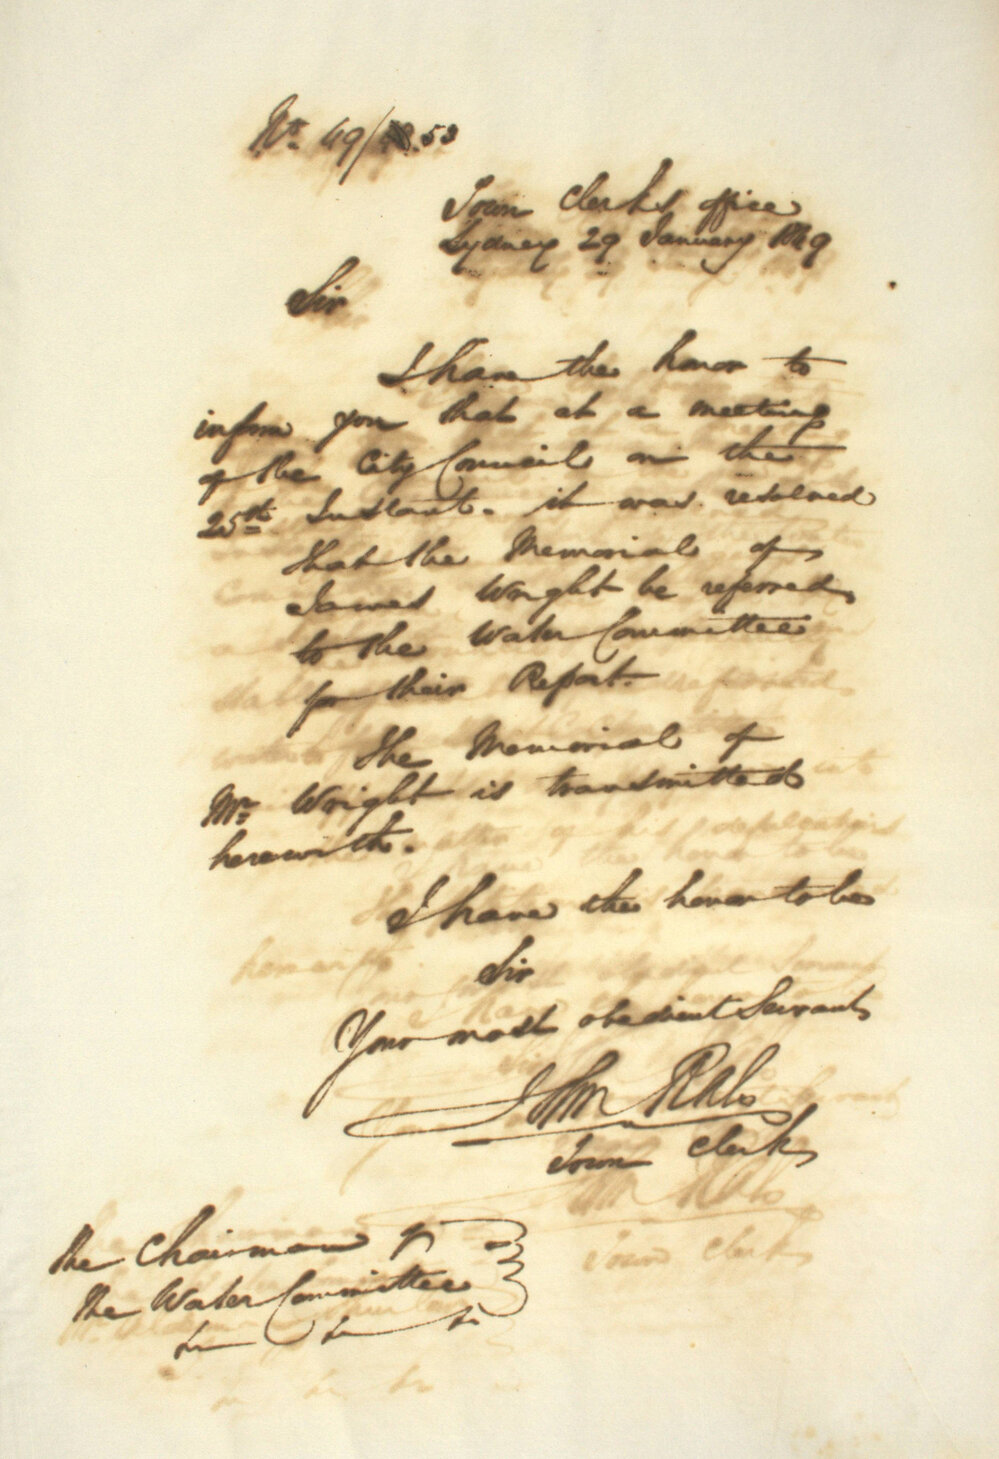 No. 49/53
Town Clerk's office
Sydney 29 January 1849
Sir
I have the honor to
inform you that at a meeting
of the City Council on the
25th Instant. it was resolved
that the Memorial of
James Wright be referred
to the Water Committee
for their Report.
The Memorial of
Mr Wright is transmitted
herewith.
I have the honor to be
Sir
Your most obedient Servant
John Rae
Town Clerk
The Chairman of
the Water Committee